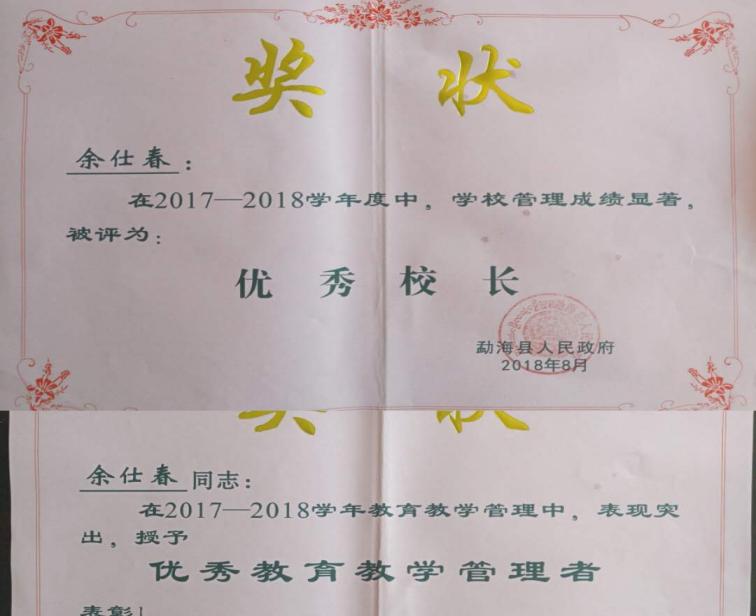 奖 状
余仕春：
在2017—2018学年度中，学校管理成绩显著，
被评为：
优秀校长
勐海县人民政府
2018年8月
奖 状
余仕春同志：
在2017—2018学年教育教学管理中，表现突
出，授予
优秀教育教学管理者
表彰！